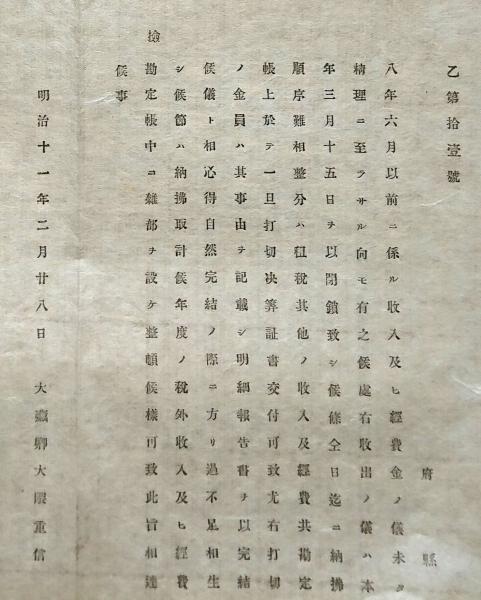 乙第拾壹號
府縣
八年六月以前ニ係ル收入及ヒ經費金ノ儀未タ
精理ニ至ラサル向モ有之候處右收出ノ儀ハ本
年三月十五日ヲ以閉鎖致シ候條仝日迄ニ納拂
順序難相整分ハ租稅其他ノ收入及經費共勘定
帳上於テ一旦打切決算証書交付可致尤右打切
ノ金員ハ其事由ヲ記載シ明細報告書ヲ以完結
候儀ト相心得自然完結ノ際ニ方リ過不足相生
シ候節ハ納拂取計候年度ノ稅外收入及ヒ經費
勘定帳中ニ雜部ヲ設ケ整頓候樣可致此旨相達
候事
檢
明治十一年二月廿八日 大藏卿大隈重信